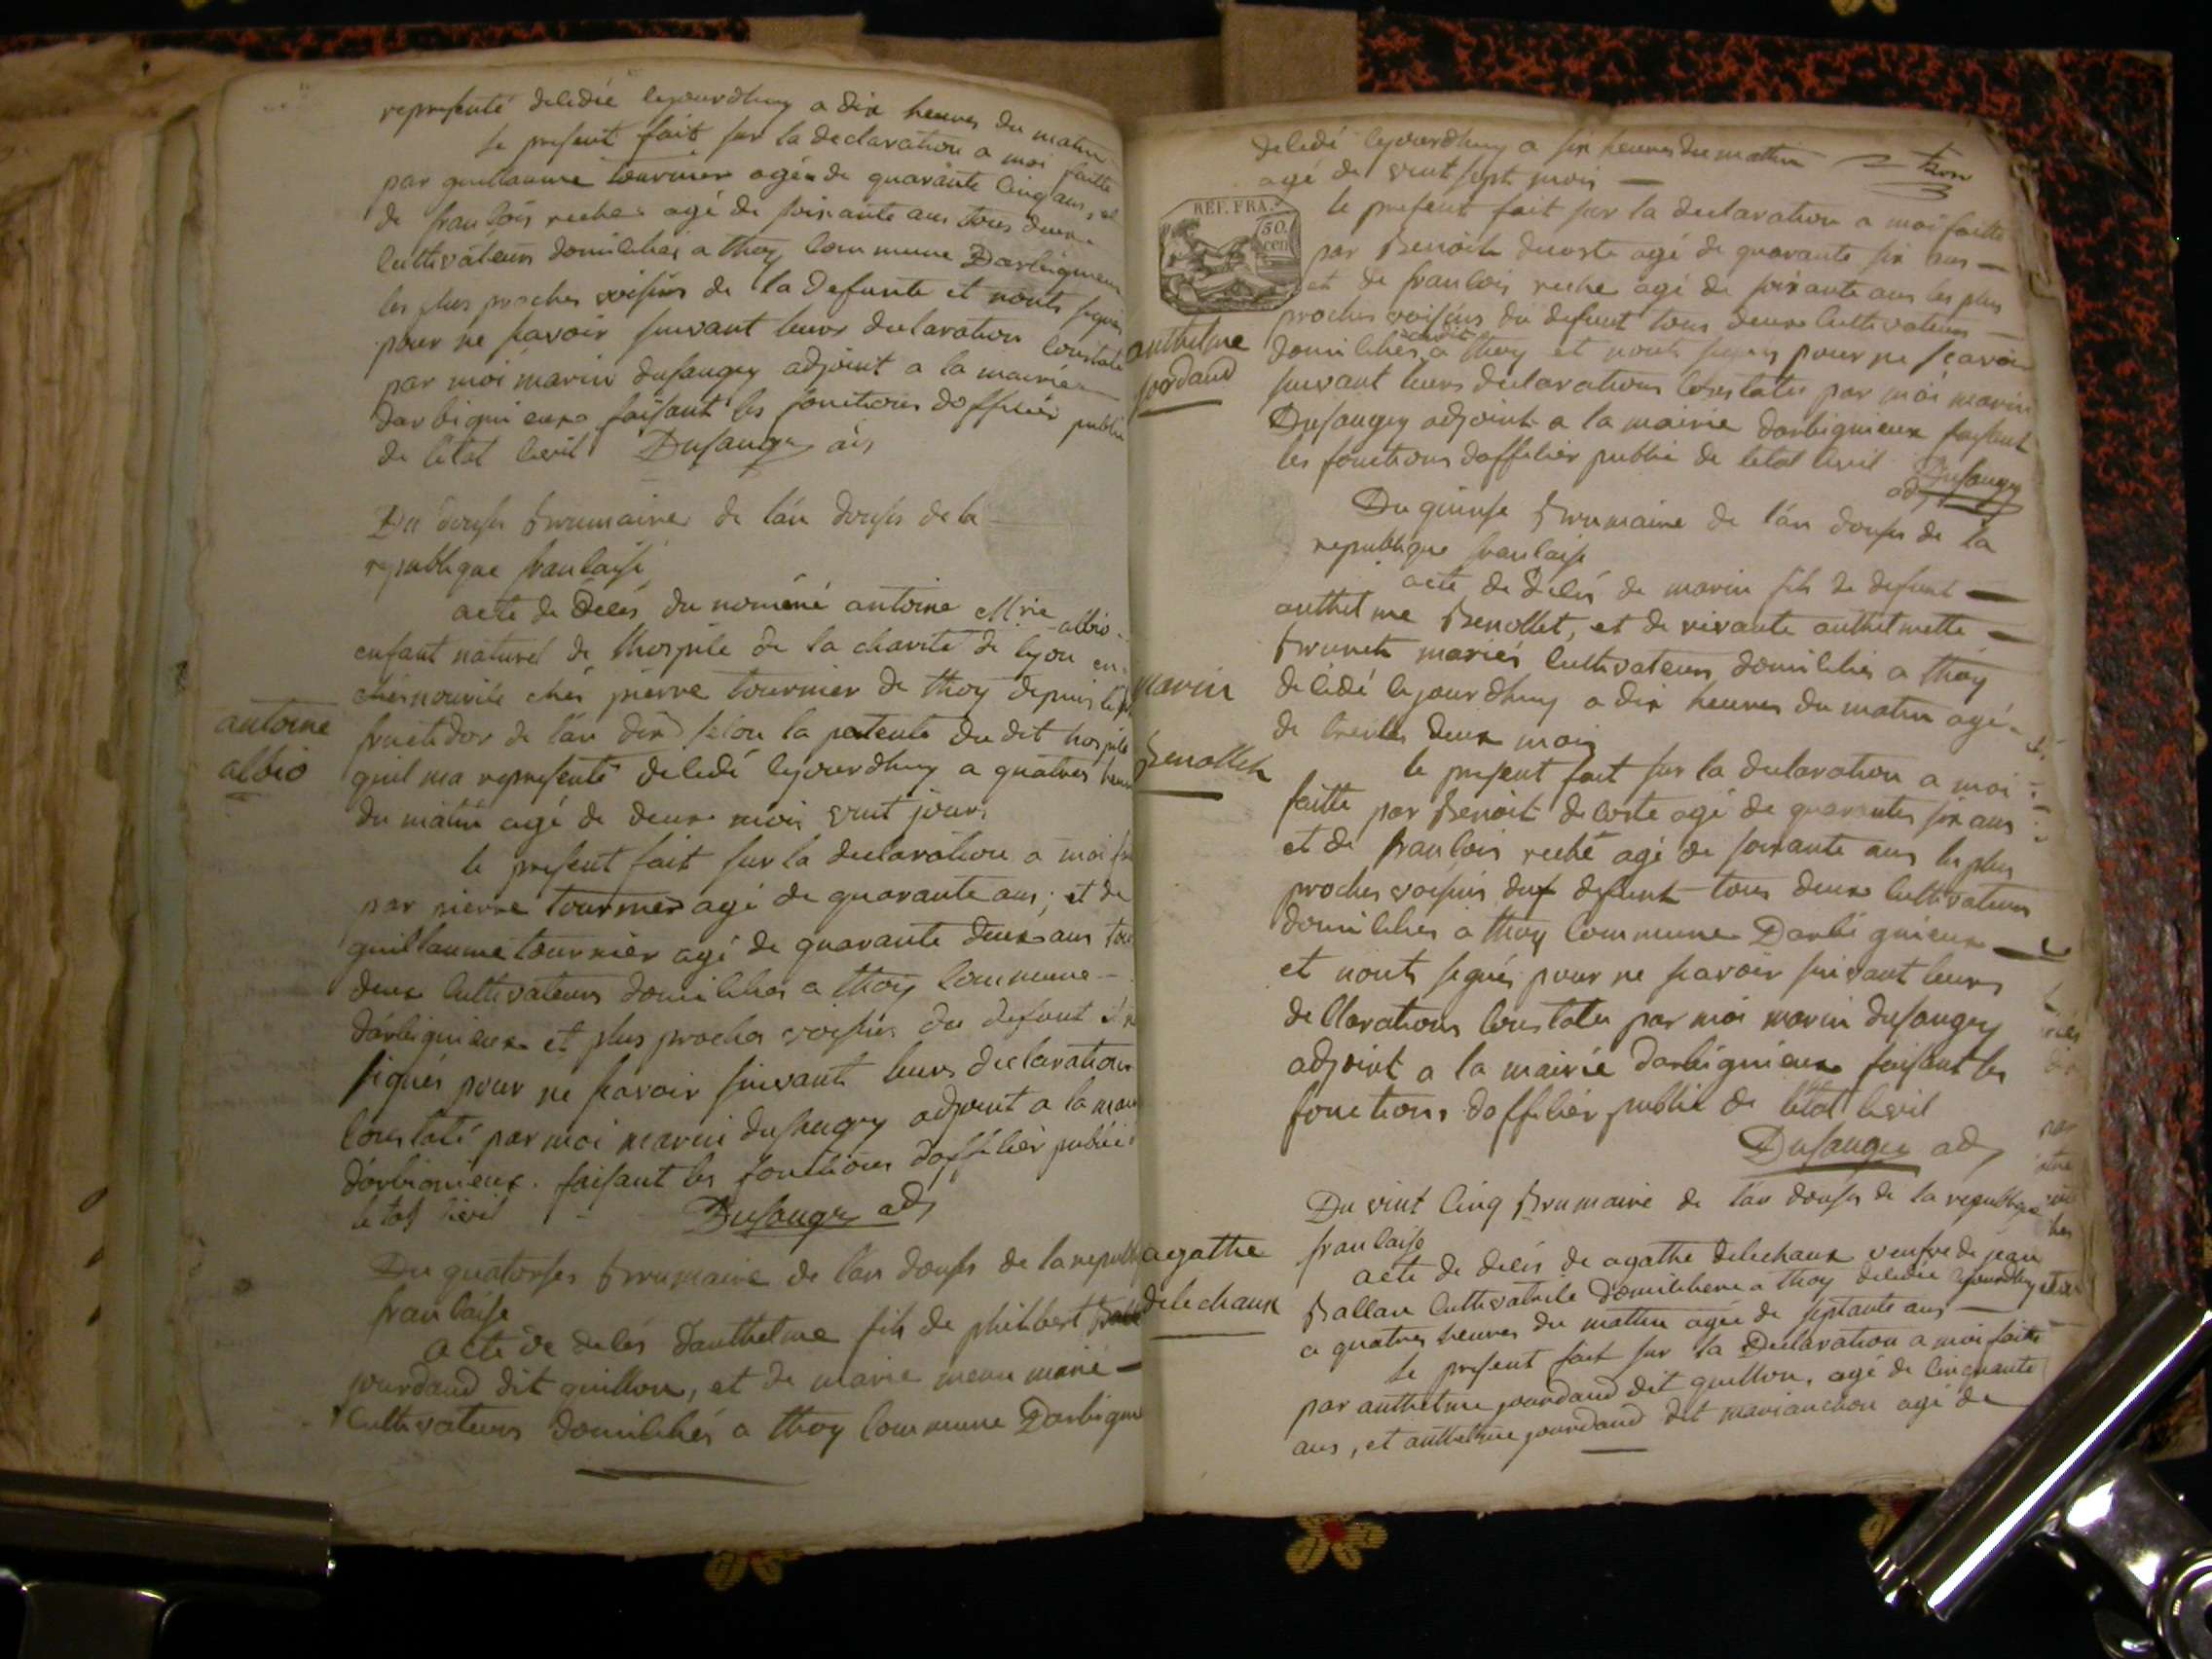 representé delédée lejourdhuy a dix heures du matin
le present fait sur la declaration a moi faitte
par guillaume tournier agé de quarante cinq ans, et
de francois reche agé de soixante ans tous deux
cultivateurs domiciliés a thoy commune Darbignieux
les plus proches voisins de la defunte et nonts signés
pour ne scavoir suivant leurs declaration constaté
par moi marin dusaugey adjoint a la mairie
darbignieux faisant les fonctions dofficier public
de letat civil Dusaugey adj
Du douse brumaire de lán douse de la
republique francaise
acte de décés du noméné antoine albio
enfant naturel de lhospice de la charité de lyon en
chés nourice chés pierre tournier de thoy depuis le
antoine
albio
fructidor de lán dix selon la patente du dit hospice
quil ma representé delédé lejourdhuy a quatres heures
du matin agé de deux mois vint jours
le present fait sur la declaration a moi
par pierre tournier agé de quarante ans, et de
guillaume tournier agé de quarante deux ans tous
deux cultivateurs domiciliés a thoy commune
dárbignieux et plus proches voisins du defunt
signés pour ne scavoir suivant leurs declarations
constaté par moi marin dusaugey adjoint a la
dárbignieux faisant les fonctions dofficier public
letat civil Dusaugey adj
Du quatorses brumaire de lán douse de la republ
francaise
acte de delés danthelme fils de philibert
jourdand dit guillon, et de marie marié
cultivateurs domiciliés a thoy commune Darbigni
delédé lejourdhuy a six heures du mattin
agé de vint sept mois
REP. FRA.
50.
cen
le present fait sur la declaration a moi faitte
par Benoit decoste agé de quarante six ans
et de francois reche agé de soixante ans les plus
proches voisins du defunt tous deux cultivateurs
anthelme
jordand
domiciliés audit a thoy et nonts signés pour ne scavoir
suivant leurs declarations constatés par moi marin
Dusaugey adjoint a la mairie darbignieux faisant
les fonctions dofficier public de letat civil
Dusaugey
adj
Du quinse brumaire de lán douse de la
republique francaise
acte de delés de marin fils de defunt
anthelme Benollet, et de vivante anthelmette
Brunet mariés cultivateurs domiciliés a thoy
marin
Benollet
delédé lejourdhuy a dix heures du matin agé
de trente deux mois
le present fait sur la declaration a moi
faitte par Benoit decoste agé de quarantes six ans
et de francois reché agé de soixante ans les plus
proches voisins du defunt tous deux cultivateurs
domiciliés a thoy commune Darbignieux
et nonts signés pour ne scavoir suivant leurs
dellarations constatés par moi marin dusaugey
adjoint a la mairie darbignieux faisant les
fonctions dofficier public de létat civil
Dusaugey adj
Du vint cinq Brumaire de lán douse de la republique
francaise
agathe
delechaux
acte de delés de agathe delechaux veufve de jean
Ballan cultivatrice domiciliere a thoy delédée lejourdhuy
a quatres heures du mattin agée de septante ans
le present fait sur la Declaration a moi faitte
par anthelme jourdand dit guillon, agé de cinquante
ans, et anthelme jourdand dit marianchon agé de